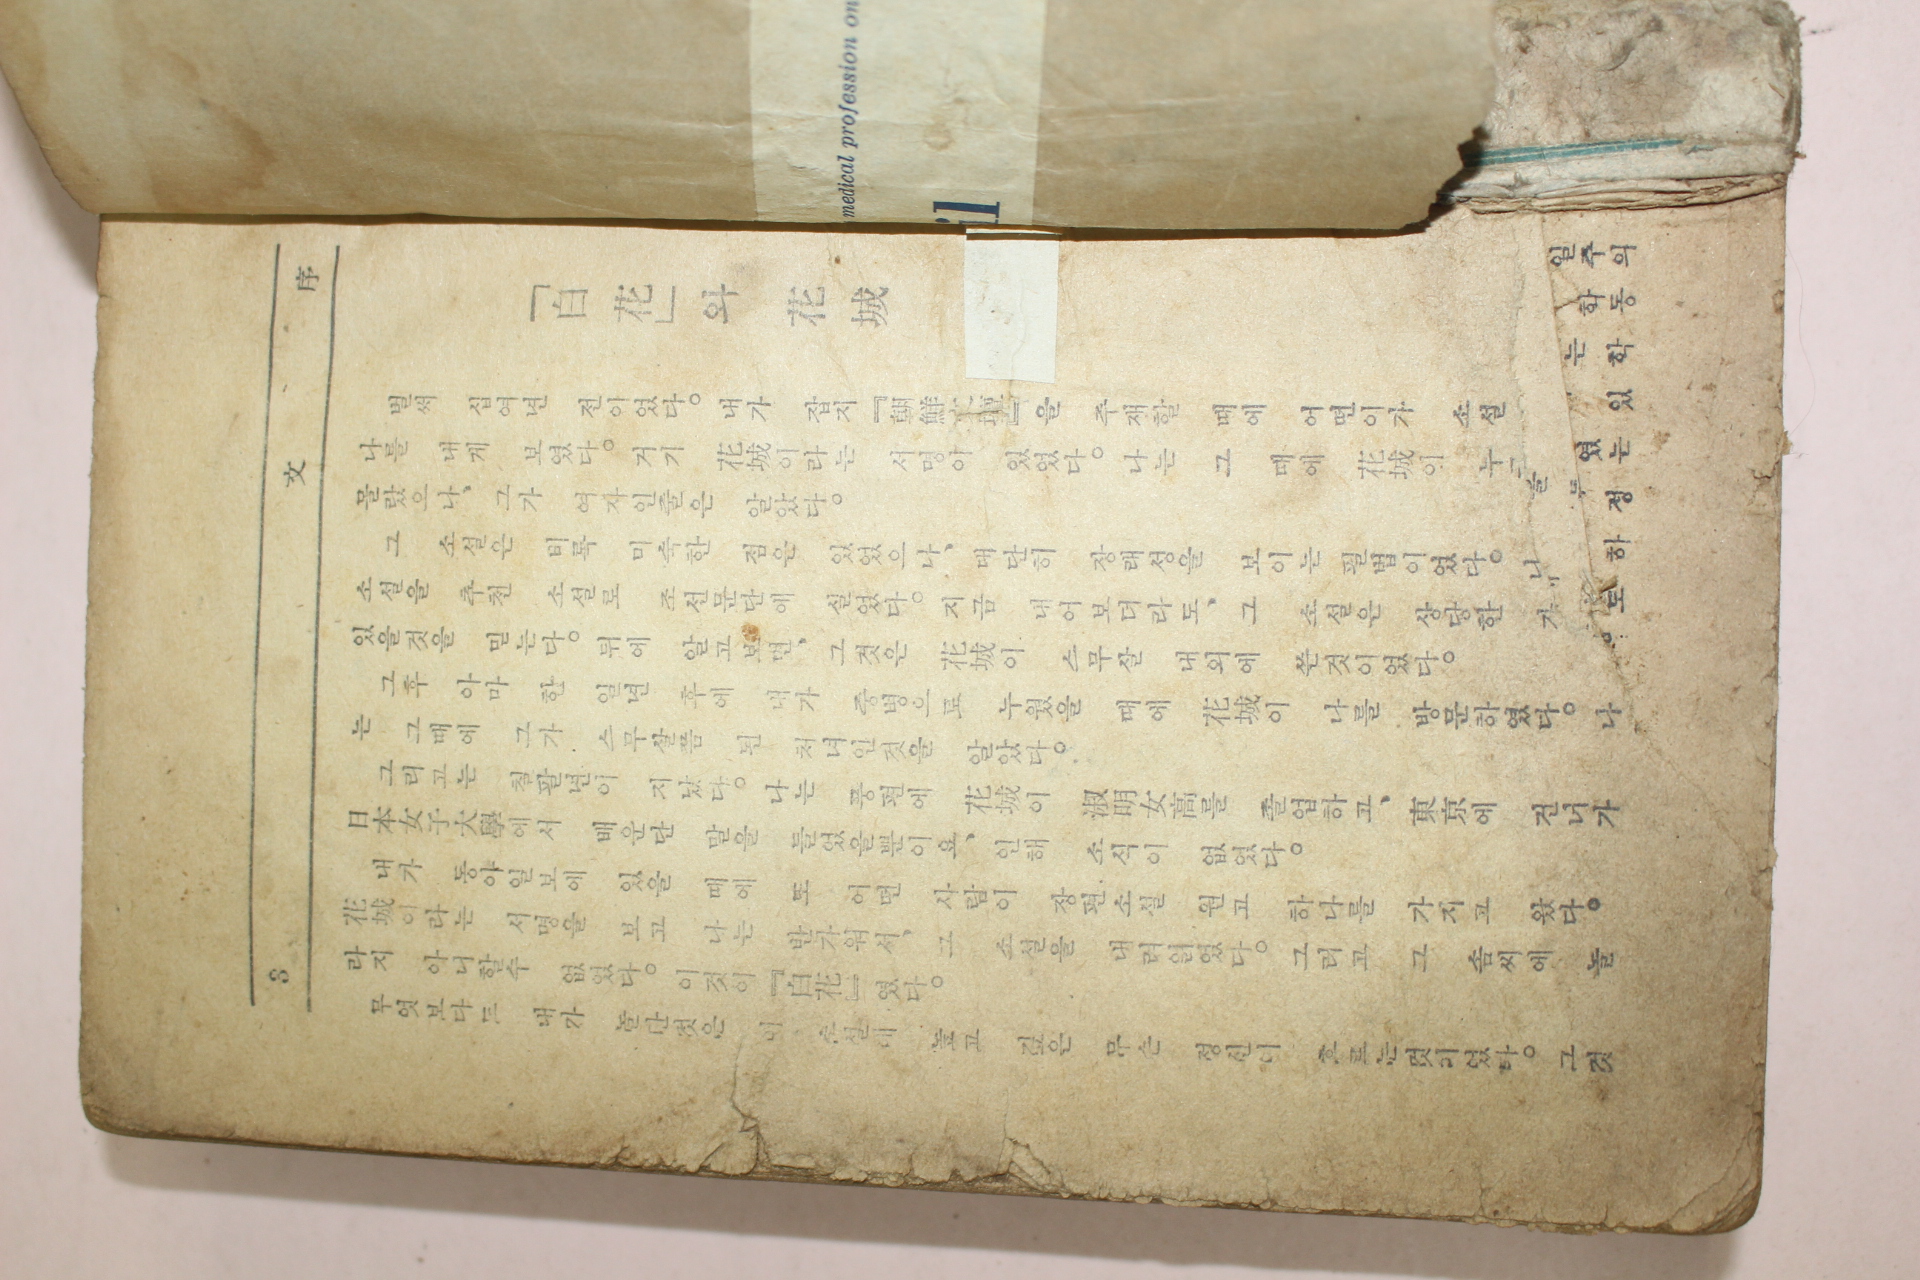 序文
3
『白花』와 花城
벌써 십여년 전이었다。내가 잡지『朝鮮文壇』을 주재할 때에 어떤이가 소설
나를 내게 보였다。거기 花城이라는 서명이 있었다。나는 그 때에 花城이
몰랐으나、그가 여자인줄은 알았다。
그 소설은 비록 미숙한 점은 있었으나、대단히 장래성을 보이는 필법이었다。
소설을 추천 소설로 조선문단에 실었다。지금 내어보더라도、그 소설은 상당한
있을것을 믿는다。뒤에 알고보면、그것은 花城이 스무살 내외에 쓴것이었다。
그후 아마 한 일년 후에 내가 중병으로 누웠을 때에 花城이 나를 방문하였다。나
는 그때에 그가 스무살쯤 된 처녀인것을 알았다。
그리고는 칠팔년이 지났다。나는 풍편에 花城이 淑明女高를 졸업하고、東京에 건너가
日本女子大學에서 배운단 말을 들었을뿐이요、인해 소식이 없었다。
내가 동아일보에 있을 때에 또 어떤 사람이 장편소설 원고 하나를 가지고 왔다。
花城이라는 서명을 보고 나는 반가워서、그 소설을 내려읽었다。그리고 그 솜씨에 놀
라지 아니할수 없었다。이것이『白花』였다。
무엇보다도 내가 놀란것은 이 소설에 높고 깊은 무슨 정신이 흐르는것이었다。그것
일주의
학동
는 학
있
였는
정
하
도
medical profession on
il